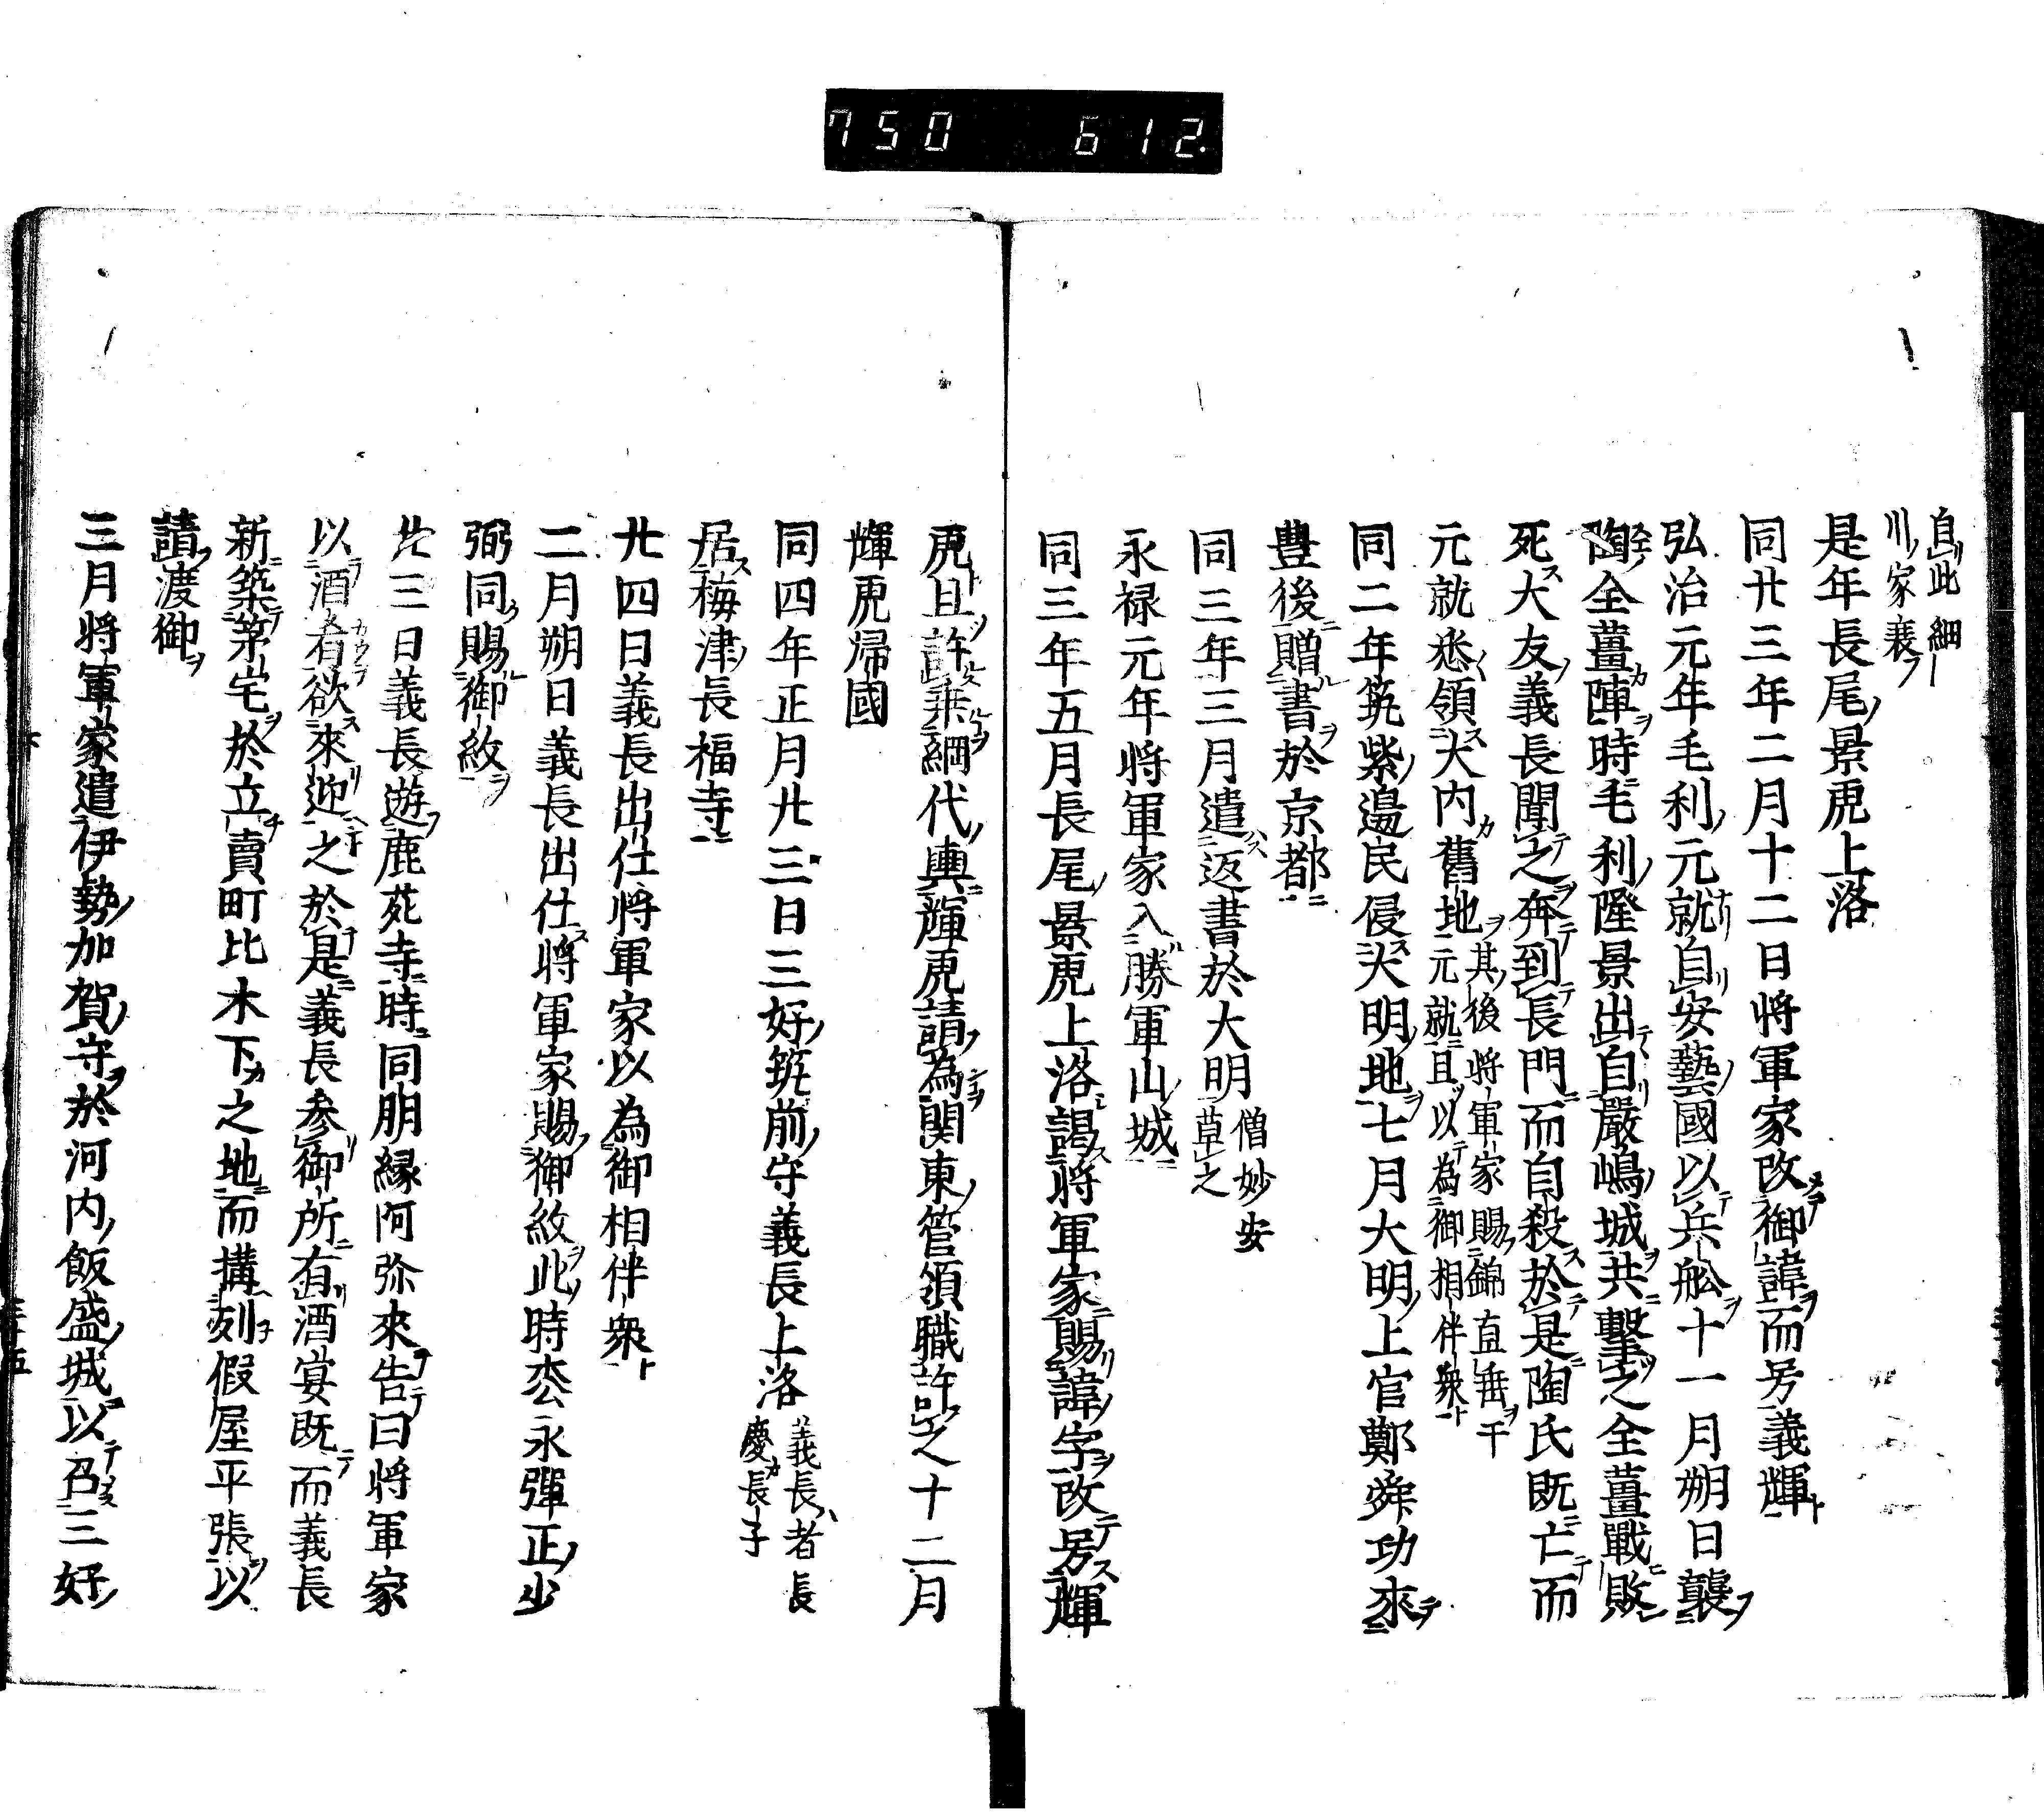 750 612.
自此細
川家衰
是年長尾景虎上洛
同廿三年二月十二日将軍家改御諱而号義輝
弘治元年毛利元就自安藝國以兵舩十一月朔日襲
陶全薑陣時毛利隆景出自嚴嶋城共擊之全薑戰敗
死大友義長聞之奔到長門而自殺於是陶氏既亡而
元就悉領大内舊地其後将軍家賜錦直垂于
元就且以為御相伴衆
同二年筑紫邉民侵大明地七月大明上官鄭舜功來
豊後贈書於京都
同三年三月遣返書於大明僧妙安
草之
永禄元年将軍家入勝軍山城
同三年五月長尾景虎上洛謁将軍家賜諱字改号輝
虎且許乗綱代輿輝虎請為関東管領職許之十二月
輝虎帰國
同四年正月廿三日三好筑前守義長上洛義長者長
慶長子
居梅津長福寺
廿四日義長出仕将軍家以為御相伴衆
二月朔日義長出仕将軍家賜御紋此時枩永彈正少
弼同賜御紋
廿三日義長遊鹿苑寺時同朋縁阿弥來告曰将軍家
以酒肴欲來迎之於是義長参御所有酒宴既而義長
新築第宅於立賣町比木下之地而搆別假屋平張以
請渡御
三月将軍家遣伊勢加賀守於河内飯盛城以召三好
三十五